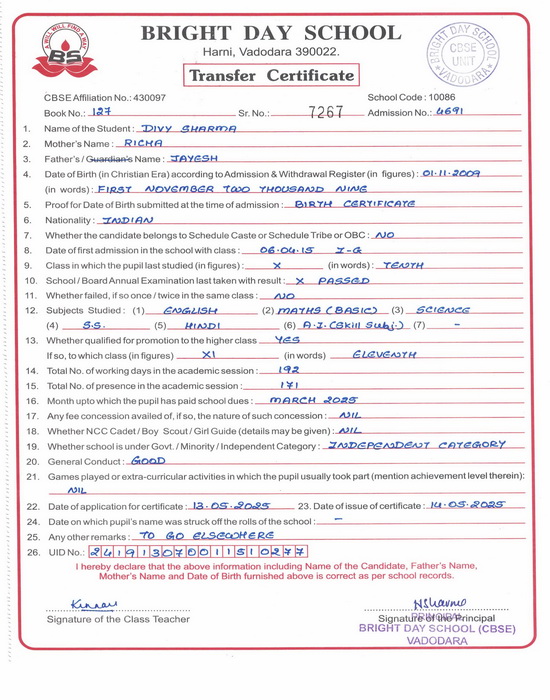 A WILL WILL FIND A WAY
BS
BRIGHT DAY SCHOOL
Harni, Vadodara 390022.
BRIGHT DAY SCHOOL
CBSE
UNIT
VADODARA
Transfer Certificate
CBSE Affiliation No.: 430097 School Code : 10086
Book No.: 127 Sr. No.: 7267 Admission No.: 4691
1. Name of the Student : DIVY SHARMA
2. Mother's Name : RICHA
3. Father's / Guardian's Name : JAYESH
4. Date of Birth (in Christian Era) according to Admission & Withdrawal Register (in figures) : 01-11-2009
(in words) : FIRST NOVEMBER TWO THOUSAND NINE
5. Proof for Date of Birth submitted at the time of admission : BIRTH CERTIFICATE
6. Nationality : INDIAN
7. Whether the candidate belongs to Schedule Caste or Schedule Tribe or OBC : NO
8. Date of first admission in the school with class : 06.04.15 I-G
9. Class in which the pupil last studied (in figures) : X (in words) : TENTH
10. School / Board Annual Examination last taken with result : X PASSED
11. Whether failed, if so once / twice in the same class : NO
12. Subjects Studied : (1) ENGLISH (2) MATHS (BASIC) (3) SCIENCE
(4) S.S. (5) HINDI (6) A.I. (Skill Subj.) (7) -
13. Whether qualified for promotion to the higher class YES
If so, to which class (in figures) XI (in words) ELEVENTH
14. Total No. of working days in the academic session : 192
15. Total No. of presence in the academic session : 171
16. Month upto which the pupil has paid school dues : MARCH 2025
17. Any fee concession availed of, if so, the nature of such concession : NIL
18. Whether NCC Cadet / Boy Scout / Girl Guide (details may be given) : NIL
19. Whether school is under Govt. / Minority / Independent Category : INDEPENDENT CATEGORY
20. General Conduct : GOOD
21. Games played or extra-curricular activities in which the pupil usually took part (mention achievement level therein):
NIL
22. Date of application for certificate : 13.05.2025 23. Date of issue of certificate : 14.05.2025
24. Date on which pupil's name was struck off the rolls of the school : -
25. Any other remarks : TO GO ELSEWHERE
26. UID No.: 24191307001151 0277
I hereby declare that the above information including Name of the Candidate, Father's Name,
Mother's Name and Date of Birth furnished above is correct as per school records.
Signature of the Class Teacher Signature of the Principal
PRINCIPAL
BRIGHT DAY SCHOOL (CBSE)
VADODARA